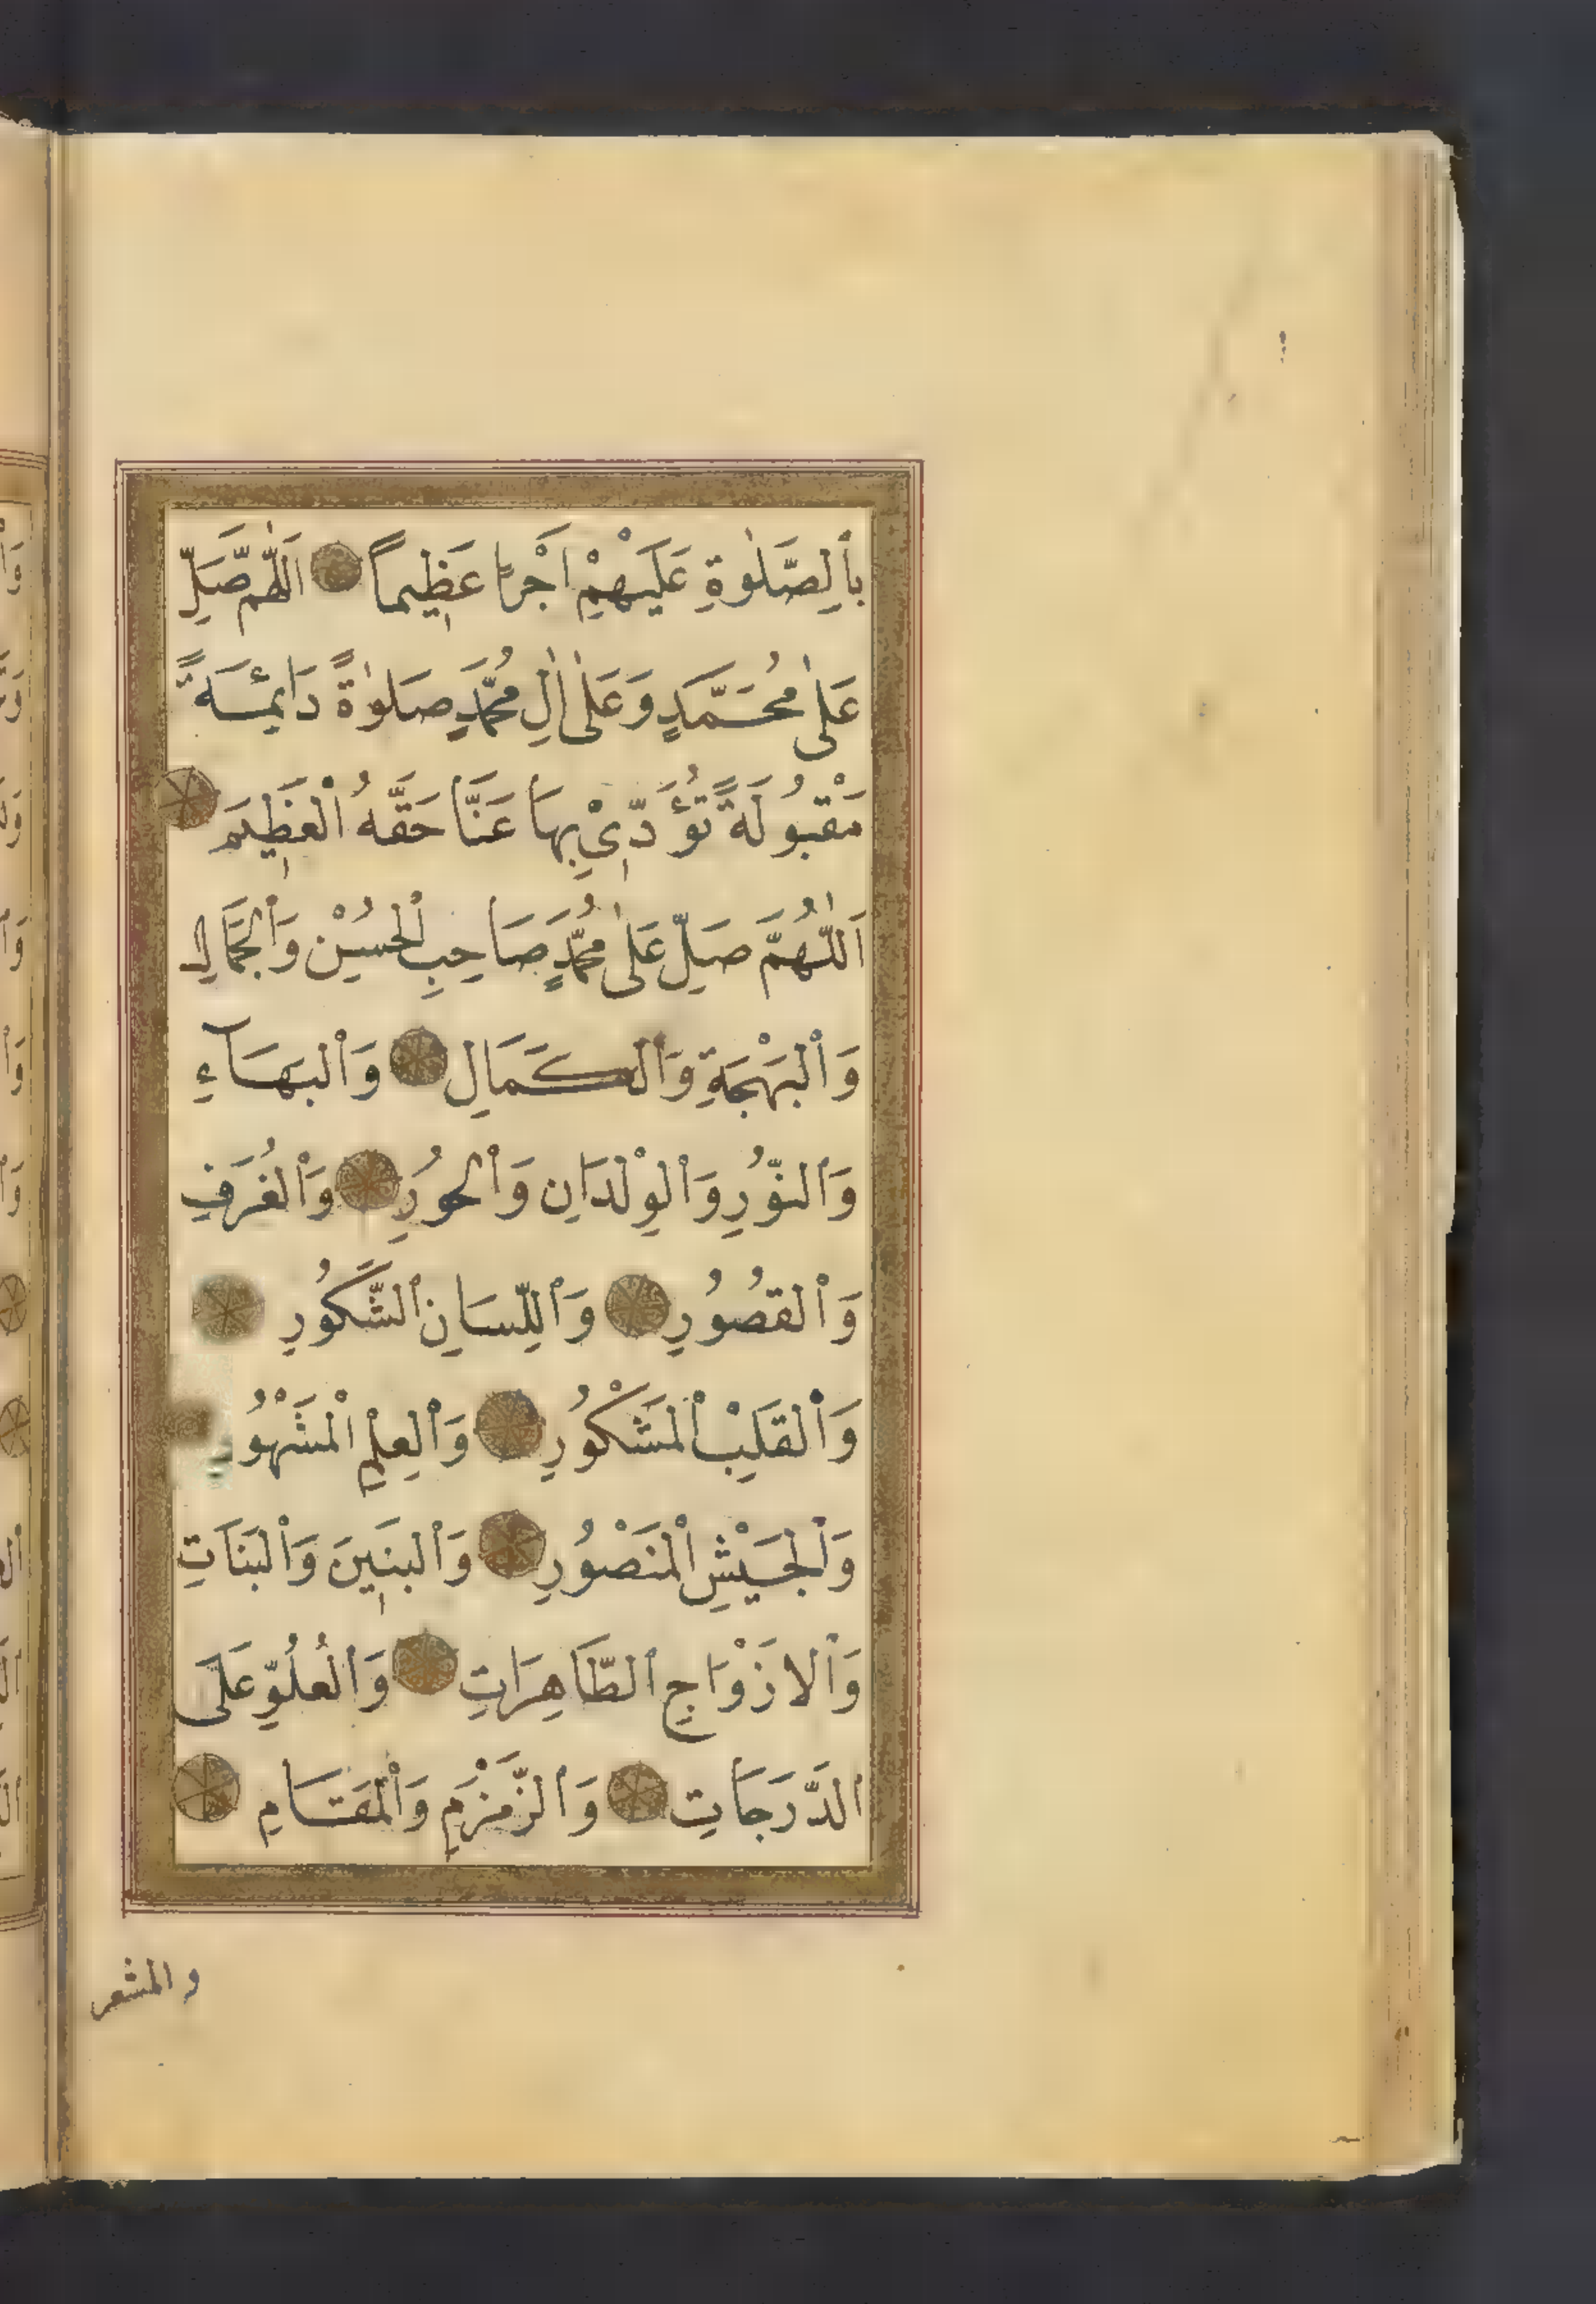 بِالصَّلٰوةِ عَلَيْهِمْ اَجْرًا عَظِيماً اَللّٰهُمَّ صَلِّ
عَلٰى مُحَمَّدٍ وَعَلٰى اٰلِ مُحَمَّدٍ صَلٰوةً دَائِمَةً
مَقْبُولَةً تُؤَدِّيْ بِهَا عَنَّا حَقَّهُ الْعَظِيمَ
اَللّٰهُمَّ صَلِّ عَلٰى مُحَمَّدٍ صَاحِبِ الْحُسْنِ وَالْجَمَالِ
وَالْبَهْجَةِ وَالْكَمَالِ وَالْبَهَاۤءِ
وَالنُّورِ وَالْوِلْدَانِ وَالْحُورِ وَالْغُرَفِ
وَالْقُصُورِ وَاللِّسَانِ الشَّكُورِ
وَالْقَلْبِ الْمَشْكُورِ وَالْعِلْمِ الْمَشْهُورِ
وَالْجَيْشِ الْمَنْصُورِ وَالْبَنِينَ وَالْبَنَاتِ
وَالْازْوَاجِ الطَّاهِرَاتِ وَالْعُلُوِّ عَلَى
الدَّرَجَاتِ وَالزَّمْزَمِ وَالْمَقَامِ
والمشعر